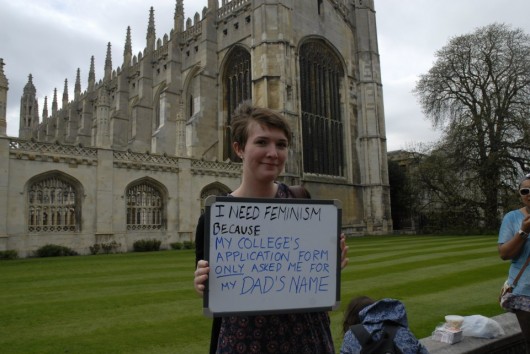 I NEED FEMINISM
BECAUSE
MY COLLEGE'S
APPLICATION FORM
ONLY ASKED ME FOR
MY DAD'S NAME